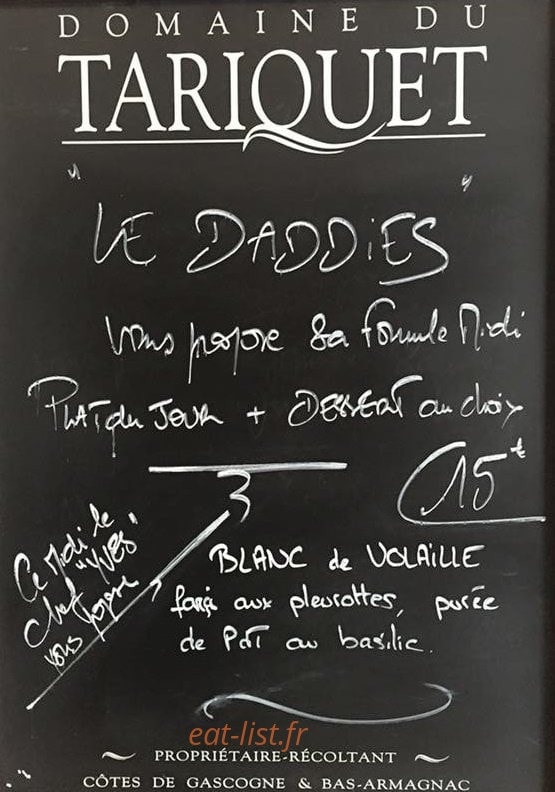 DOMAINE DU
TARIQUET
" LE DADDIES "
vous propose sa formule Midi
PLAT du JOUR + DESSERT au choix
15€
Ce Midi le
chef "YVES"
vous propose
BLANC de VOLAILLE
farçi aux pleurottes, purée
de PdT au basilic.
eat-list.fr
PROPRIÉTAIRE-RÉCOLTANT
CÔTES DE GASCOGNE & BAS-ARMAGNAC